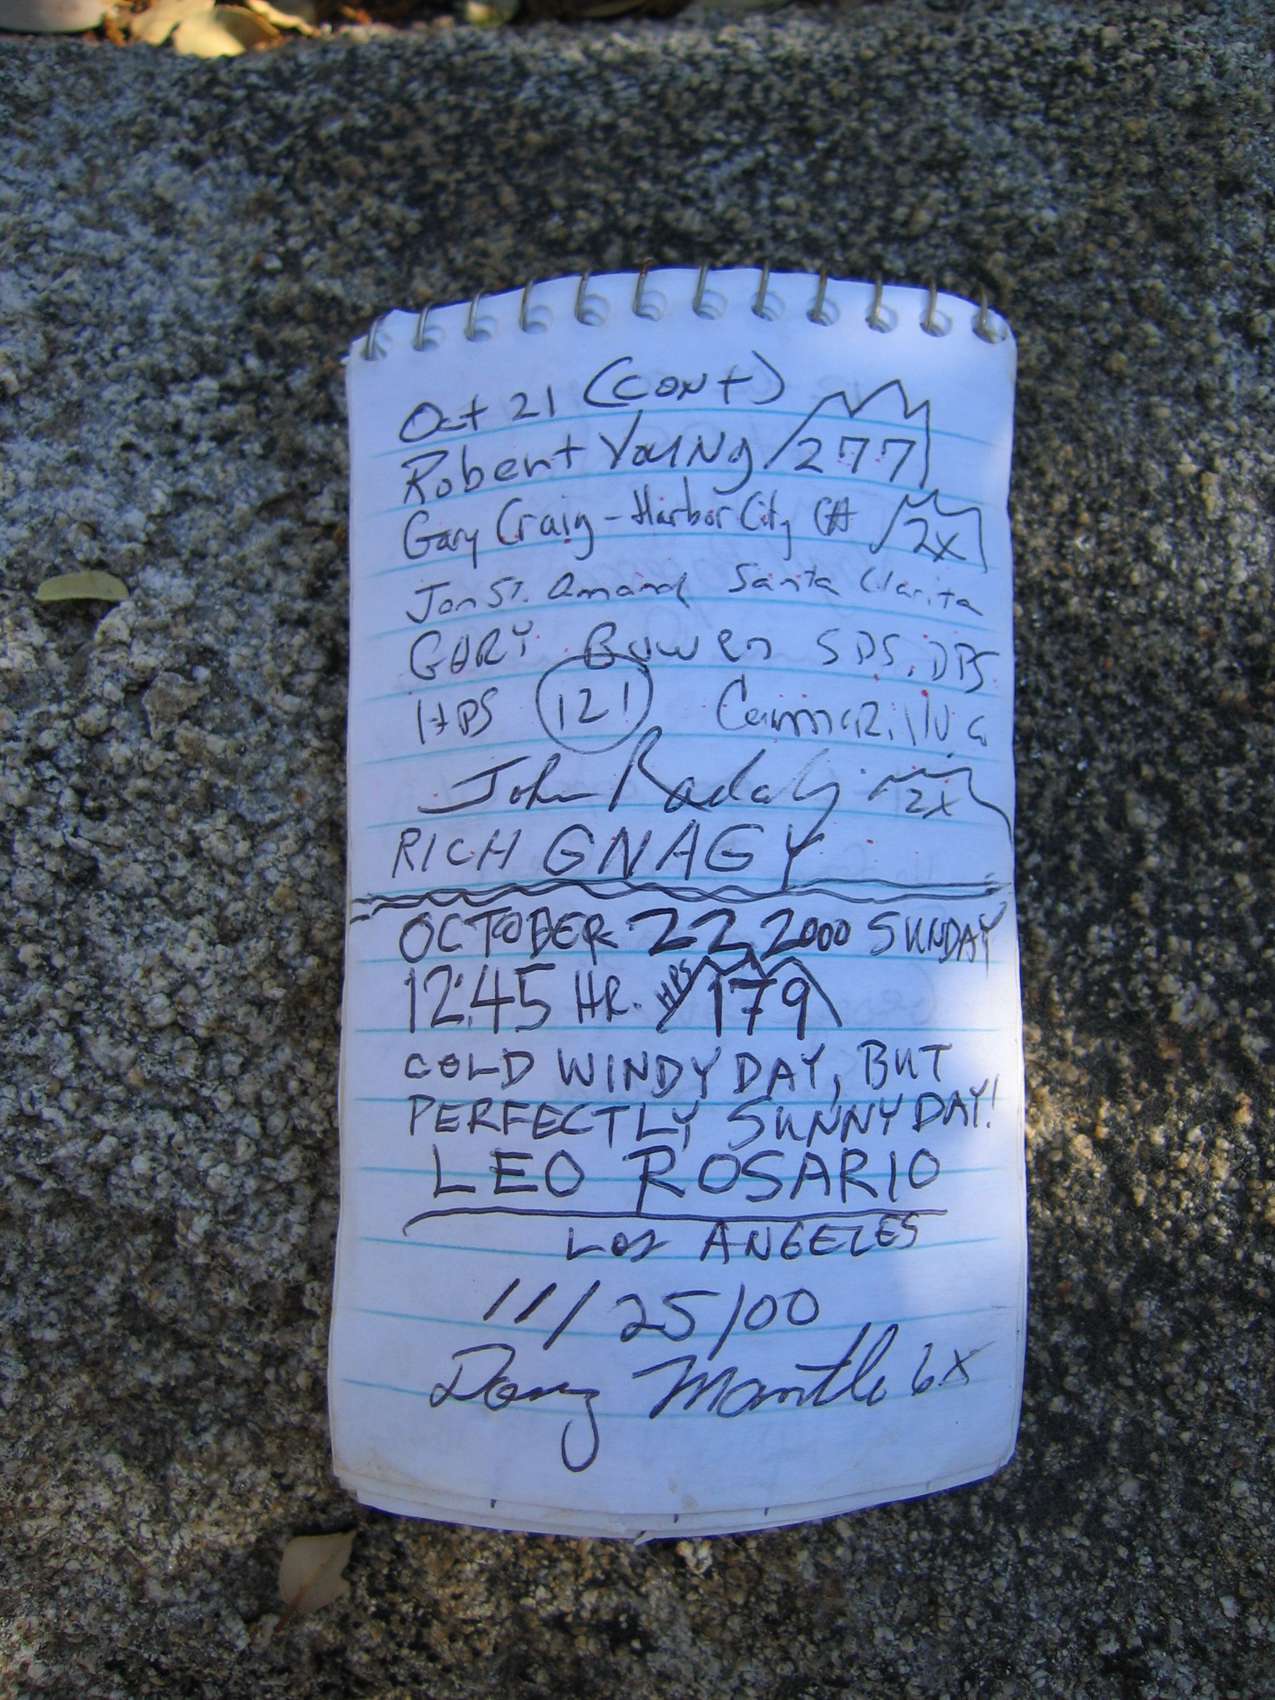 Oct 21 (CONT)
Robert Young 277
Gary Craig - Harbor City CA 2X
Jon St. Amand Santa Clarita
GARY Bowen SPS, DPS
HPS 121 Camarillo Ca
John Radaly 2X
RICH GNAGY
OCTOBER 22, 2000 SUNDAY
12:45 HR. HPS 179
COLD WINDY DAY, BUT
PERFECTLY SUNNY DAY!
LEO ROSARIO
LOS ANGELES
11/25/00
Doug Mantle 6X